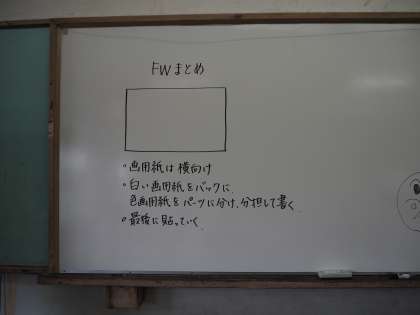 FWまとめ
・画用紙は横向け
・白い画用紙をバックに
色画用紙をパーツに分け、分担して書く.
・最後に貼っていく.